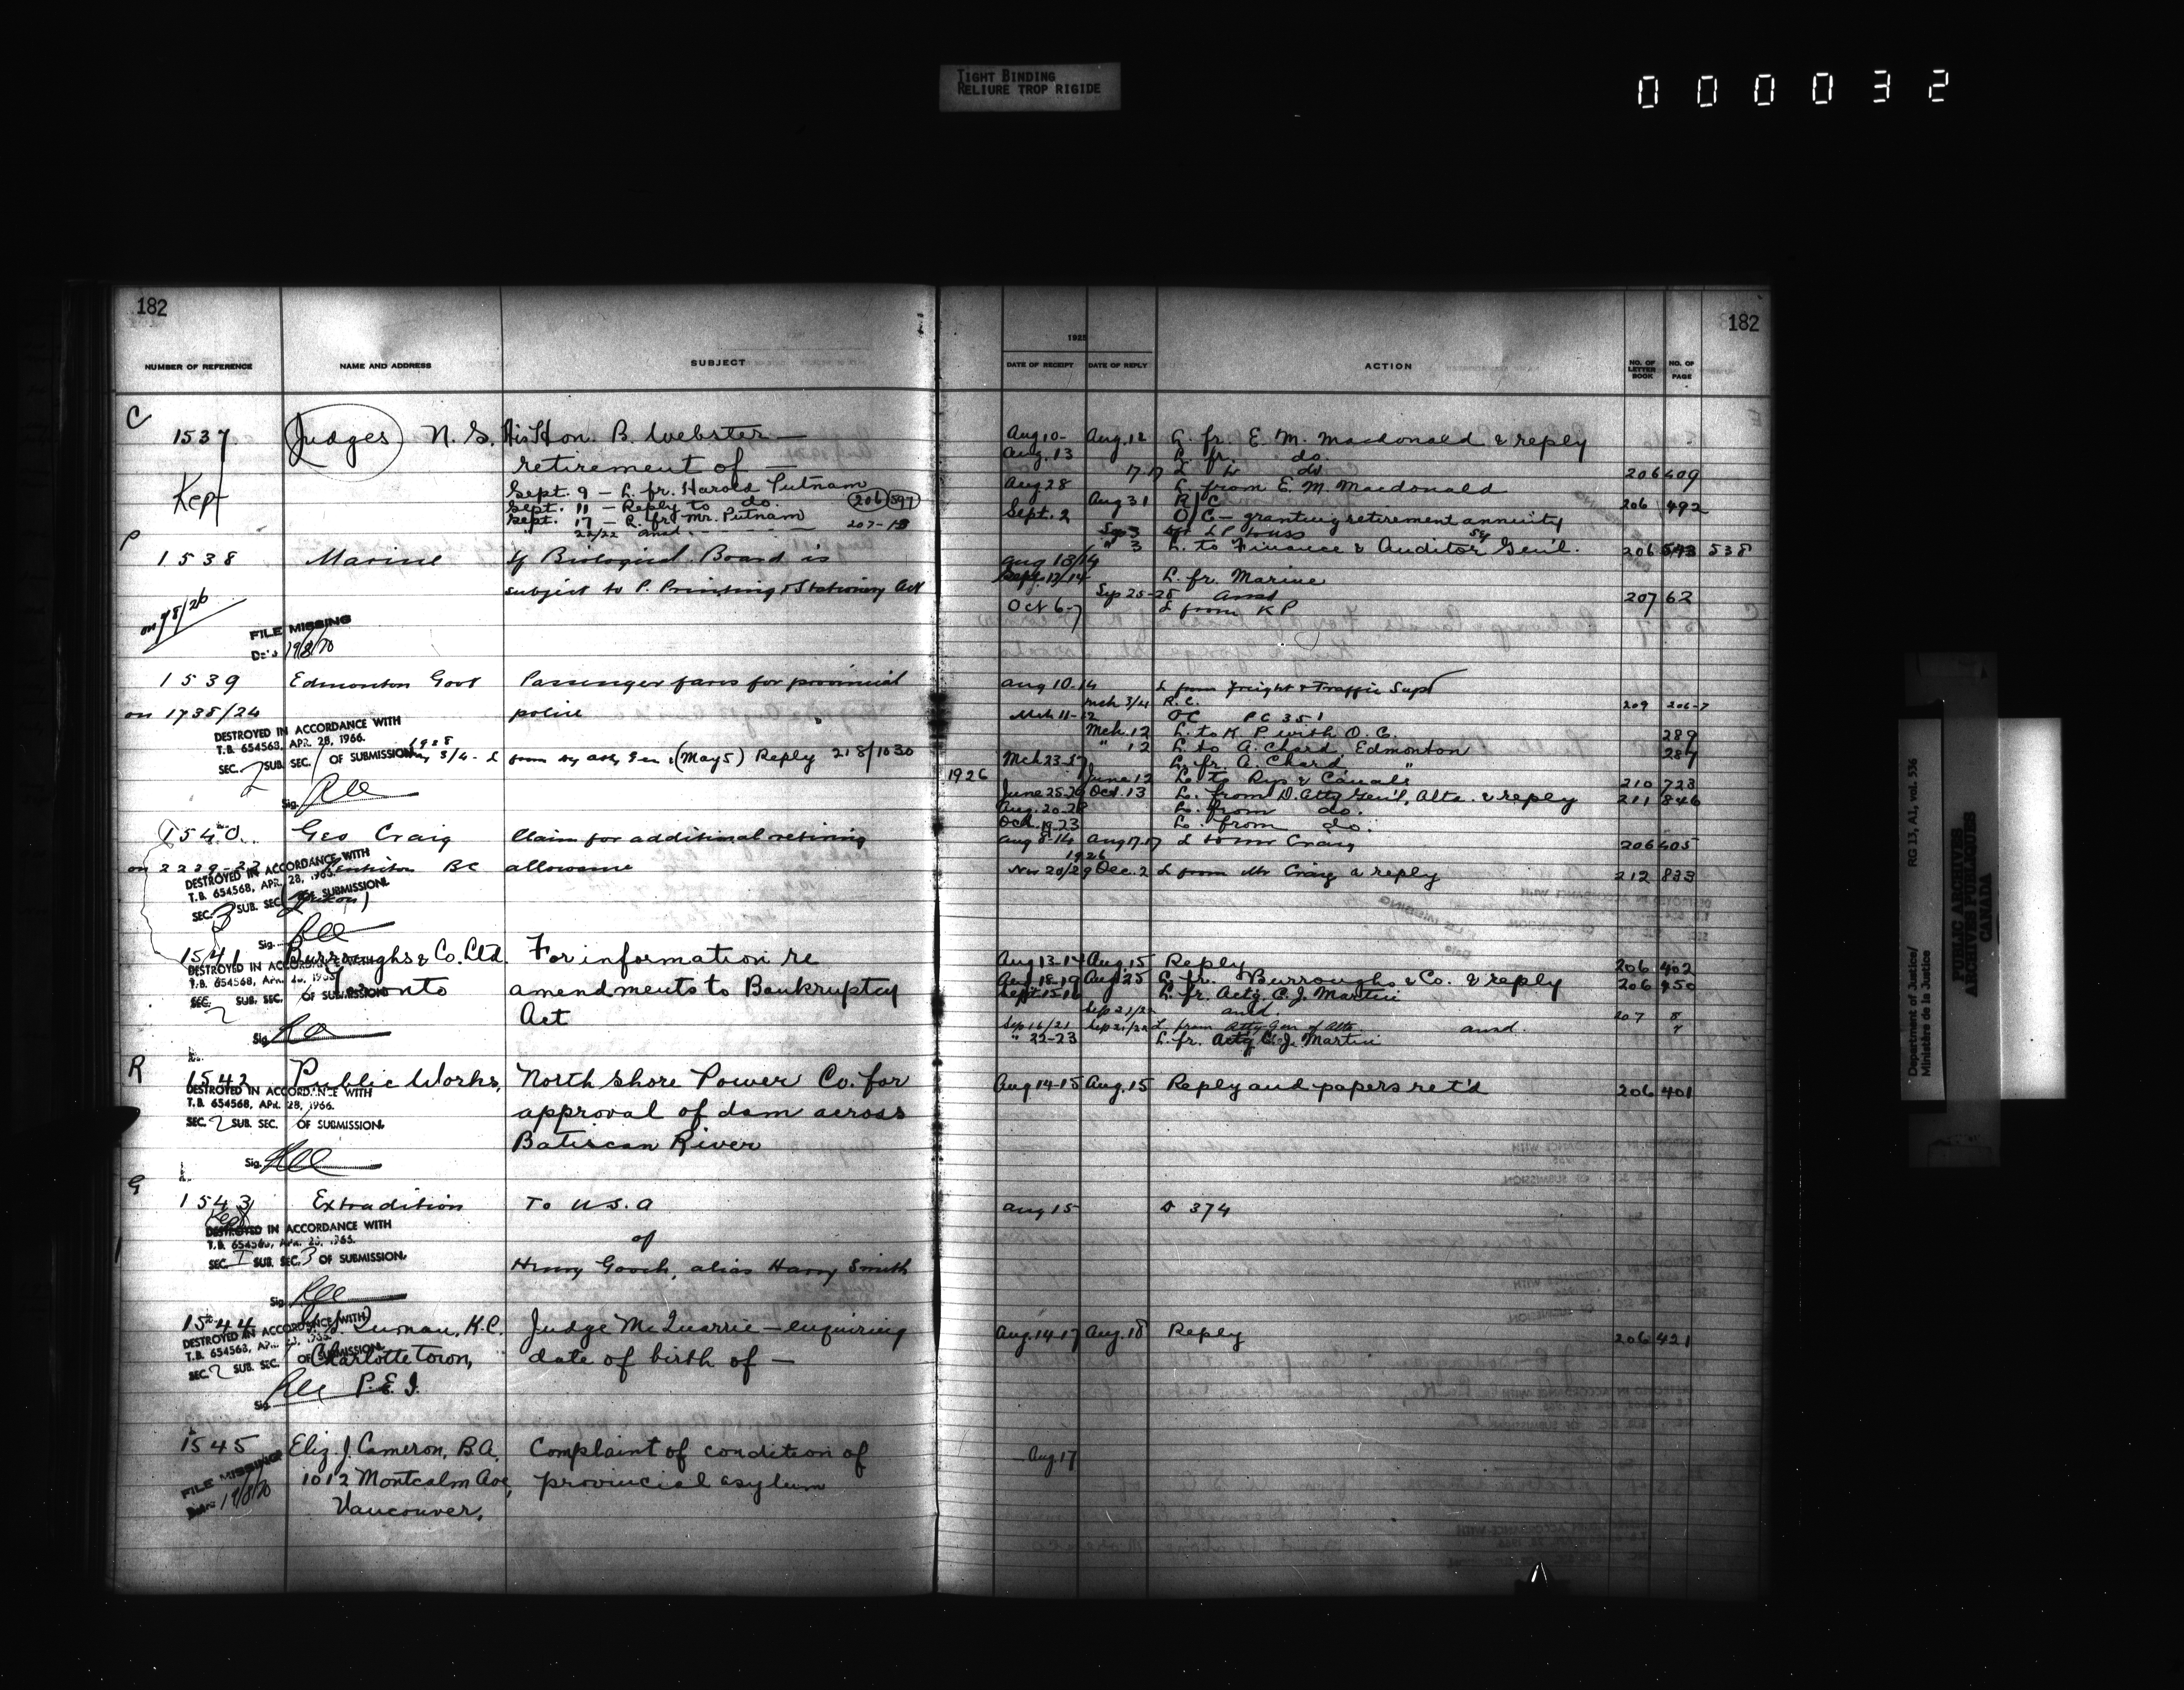 TIGHT BINDING
RELIURE TROP RIGIDE
000032
182
NUMBER OF REFERENCE NAME AND ADDRESS SUBJECT
C
1537 Judges N. S. His Hon. B. Webster —
retirement of —
Kept
Sept. 9 — L. fr. Harold Putnam
Sept. 11 — Reply to do. 206 597
Sept. 17 — L. fr. Mr. Putnam 207-13
22/22 ansd.
P
1538 Marine If Biological Board is
subject to P. Printing & Stationery Act
on 98/26
FILE MISSING
Date 19/8/70
1539 Edmonton Govt Passenger fares for provincial
on 1735/24 police
DESTROYED IN ACCORDANCE WITH
T.B. 654568, APR. 28, 1966.
SEC. 2 SUB. SEC. 1 OF SUBMISSION.
1928
3/4 - L from Dy Atty Gen. (May 5) Reply 218/1030
Sig.
1540 Geo Craig Claim for additional retiring
on 2229-22 BC allowance
DESTROYED IN ACCORDANCE WITH
T.B. 654568, APR. 28, 1966.
SEC. 3 SUB. SEC. OF SUBMISSION.
Sig.
1541 Burroughs & Co. Ltd. For information re
DESTROYED IN ACCORDANCE WITH
T.B. 654568, APR. 28, 1966.
Toronto amendments to Bankruptcy
SEC. 2 SUB. SEC. OF SUBMISSION.
Act
Sig.
R
1542 Public Works, North Shore Power Co. for
DESTROYED IN ACCORDANCE WITH
T.B. 654568, APR. 28, 1966.
approval of dam across
SEC. 2 SUB. SEC. OF SUBMISSION.
Batiscan River
Sig.
G
1543 Extradition To U.S.A
Kept
DESTROYED IN ACCORDANCE WITH
T.B. 654568, APR. 28, 1966.
of
SEC. I SUB. SEC. 3 OF SUBMISSION.
Henry Gooch, alias Harry Smith
Sig.
1544 K.C. Judge McQuarrie — enquiring
DESTROYED IN ACCORDANCE WITH
T.B. 654568,
Charlottetown, date of birth of —
SEC. 2 SUB. SEC. OF SUBMISSION.
P.E.I.
Sig.
1545 Eliz. J. Cameron, B.A. Complaint of condition of
FILE MISSING
1012 Montcalm Ave, provincial asylum
Date 19/8/70
Vancouver,
182
1925
DATE OF RECEIPT DATE OF REPLY ACTION NO. OF LETTER BOOK NO. OF PAGE
Aug 10- Aug. 12 L. fr. E. M. Macdonald & reply
Aug. 13 L. fr. do.
17.17 L to do 206 409
Aug 28 L. from E. M. Macdonald
Aug 31 R/C 206 492
Sept. 2 O/C — granting retirement annuity
Sep 3
" 3 L. to Finance & Auditor Gen'l. 206 543 538
Aug 13/14
Sept. 12/14 L. fr. Marine
Sep 25-25 ansd 207 62
Oct 6-7 L from K P
Aug 10-14 L from Freight & Traffic Supt
Mch 3/4 R.C. 209 206-7
Mch 11-12 OC PC 351
Mch. 12 L. to K P with O. C. 289
" 12 L. to A. Chard Edmonton 287
Mch 23-27 L. fr. A. Chard "
1926 June 12 L. to Rys & Canals 210 723
June 25-26 Oct. 13 L. from D. Atty Gen'l, Alta. & reply 211 846
Aug. 20-28 L. from do.
Oct. 19-23 L. from do.
Aug 8-14 Aug 17.17 L to Mr Craig 206 405
1926
Nov 20/29 Dec. 2 L from Mr Craig & reply 212 833
Aug 13-14 Aug 15 Reply 206 402
Aug. 18-19 Aug 25 L. fr. Burroughs & Co. & reply 206 450
Sept 15-16 L. fr. Actg. C. J. Martin
Sep 21/22 ansd 207 8
Sep 16/21 Sep 21/22 L. from Atty Gen of Alta. ansd. 9
" 22-23 L. fr. Actg. C. J. Martin
Aug 14-15 Aug. 15 Reply and papers ret'd 206 401
Aug 15 374
Aug. 14-17 Aug. 18 Reply 206 421
Aug. 17
Department of Justice/
Ministère de la Justice
RG 13, A1, vol. 536
PUBLIC ARCHIVES
ARCHIVES PUBLIQUES
CANADA